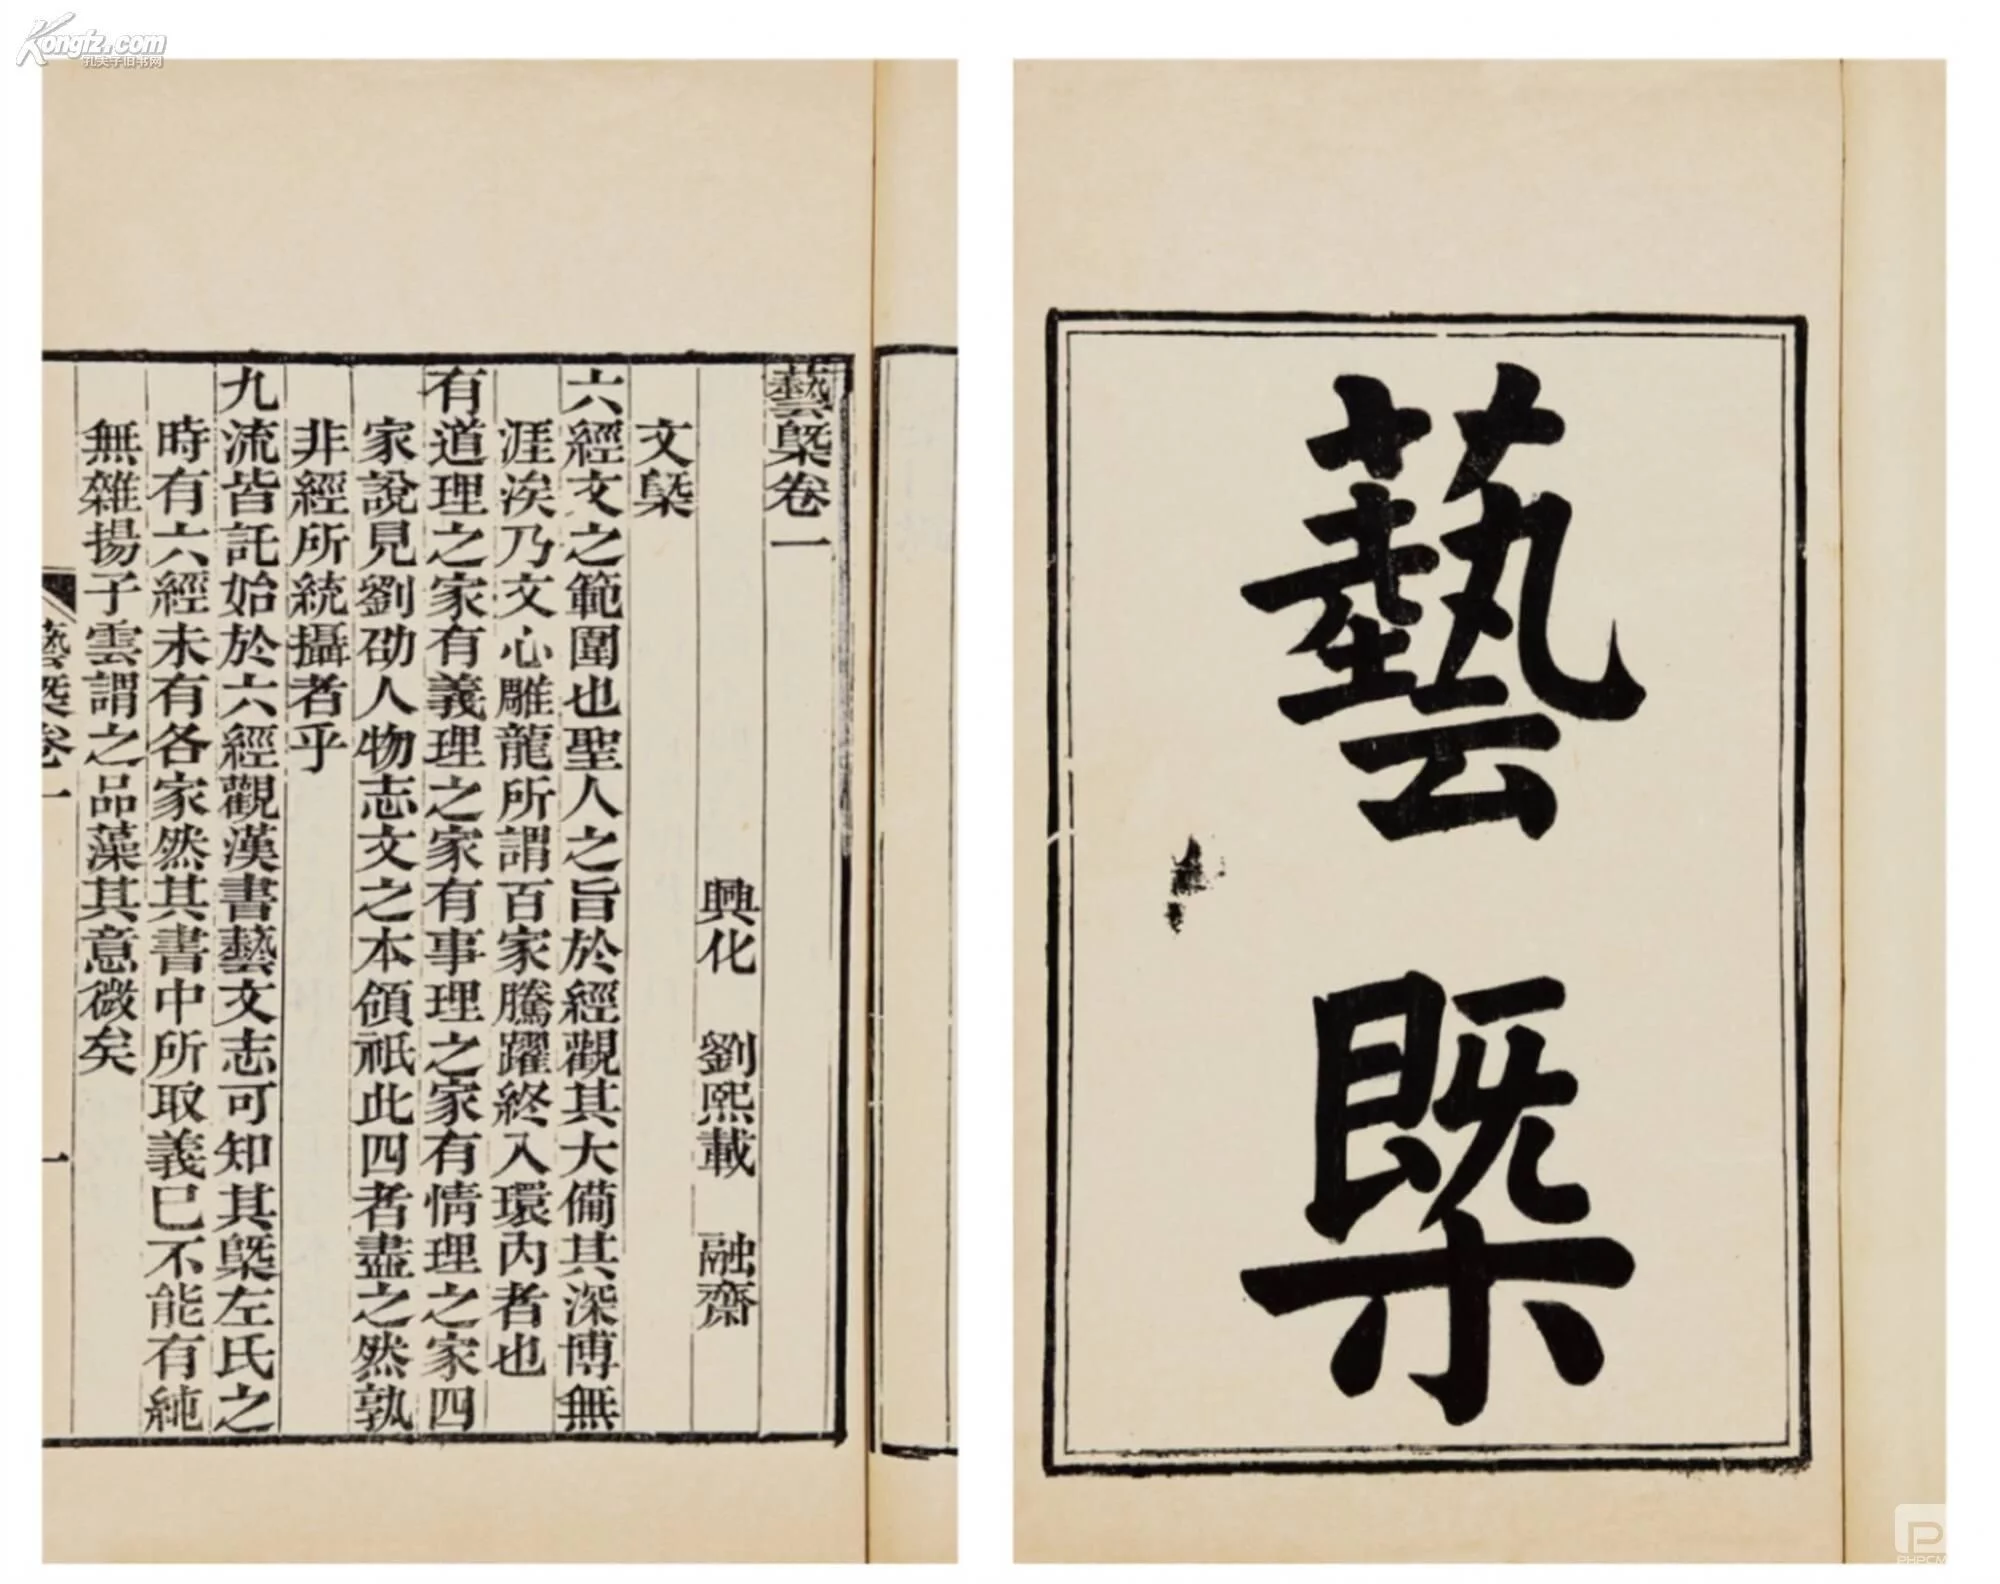 藝槩
藝槩卷一
興化 劉熙載 融齋
文槩
六經文之範圍也聖人之旨於經觀其大備其深博無
涯涘乃文心雕龍所謂百家騰躍終入環內者也
有道理之家有義理之家有事理之家有情理之家四
家說見劉劭人物志文之本領祇此四者盡之然孰
非經所統攝者乎
九流皆託始於六經觀漢書藝文志可知其槩左氏之
時有六經未有各家然其書中所取義已不能有純
無雜揚子雲謂之品藻其意微矣
藝槩卷一
一
Kongfz.com
孔夫子旧书网
PHPCM